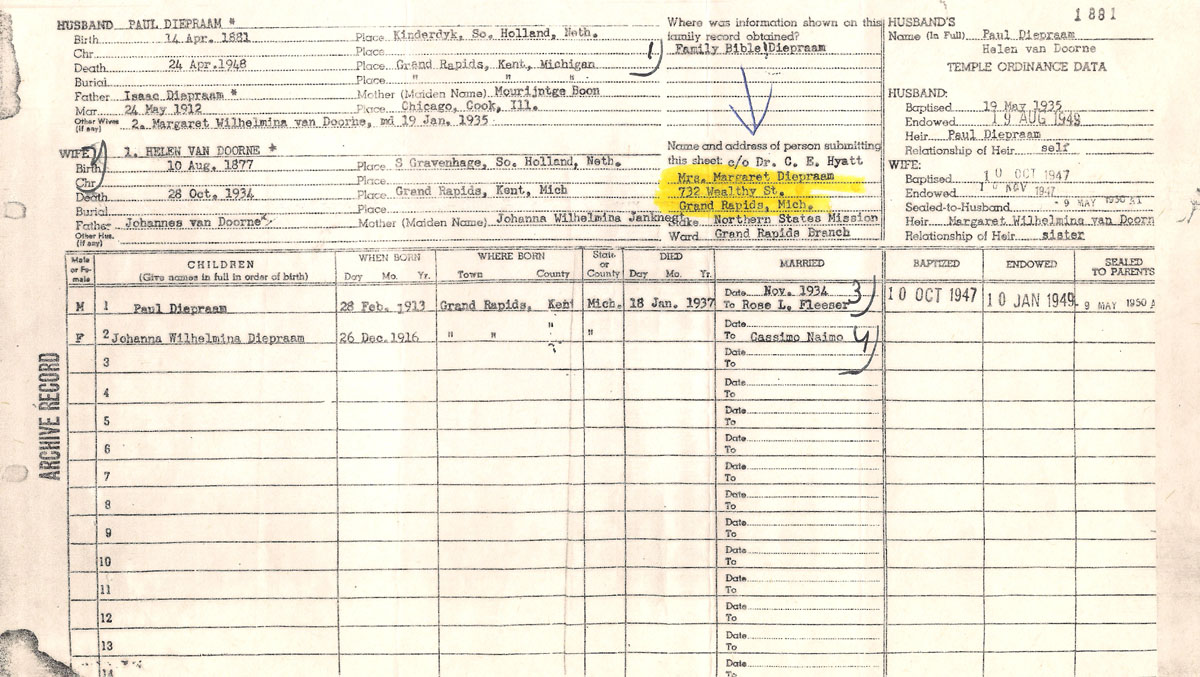 1881
HUSBAND PAUL DIEPRAAM *
Birth 14 Apr. 1881 Place Kinderdyk, So. Holland, Neth.
Chr. Place
Death 24 Apr.1948 Place Grand Rapids, Kent, Michigan
Burial Place " " "
Father Isaac Diepraam * Mother (Maiden Name) Mourijntge Boon
Mar 24 May 1912 Place Chicago, Cook, Ill.
Other Wives (if any) 2. Margaret Wilhelmina van Doorne, md 19 Jan. 1935
1)
WIFE 1. HELEN VAN DOORNE *
2)
Birth 10 Aug. 1877 Place S Gravenhage, So. Holland, Neth.
Chr. Place
Death 28 Oct. 1934 Place Grand Rapids, Kent, Mich
Burial Place
Father Johannes van Doorne Mother (Maiden Name) Johanna Wilhelmina Janknegt
Other Hus. (if any)
Where was information shown on this
family record obtained?
Family Bible Diepraam
Name and address of person submitting
this sheet: c/o Dr. C. E. Hyatt
Mrs. Margaret Diepraam
732 Wealthy St.
Grand Rapids, Mich.
Stake Northern States Mission
Ward Grand Rapids Branch
HUSBAND'S
Name (In Full) Paul Diepraam
Helen van Doorne
TEMPLE ORDINANCE DATA
HUSBAND:
Baptised 19 May 1935
Endowed 19 AUG 1949
Heir Paul Diepraam
Relationship of Heir self
WIFE:
Baptised 10 OCT 1947
Endowed NOV 1947
Sealed-to-Husband - 9 MAY 1950
Heir Margaret Wilhelmina van Doorn
Relationship of Heir sister
Male or Female CHILDREN (Give names in full in order of birth) WHEN BORN Day Mo. Yr. WHERE BORN Town County State or County DIED Day Mo. Yr. MARRIED BAPTIZED ENDOWED SEALED TO PARENTS
M 1 Paul Diepraam 28 Feb. 1913 Grand Rapids, Kent Mich. 18 Jan. 1937 Date Nov. 1934 To Rose L. Fleeser 3) 10 OCT 1947 10 JAN 1949 9 MAY 1950
F 2 Johanna Wilhelmina Diepraam 26 Dec.1916 " " " " Date To Cassimo Naimo 4)
?
3 Date To
4 Date To
5 Date To
6 Date To
7 Date To
8 Date To
9 Date To
10 Date To
11 Date To
12 Date To
13 Date To
14 Date
ARCHIVE RECORD